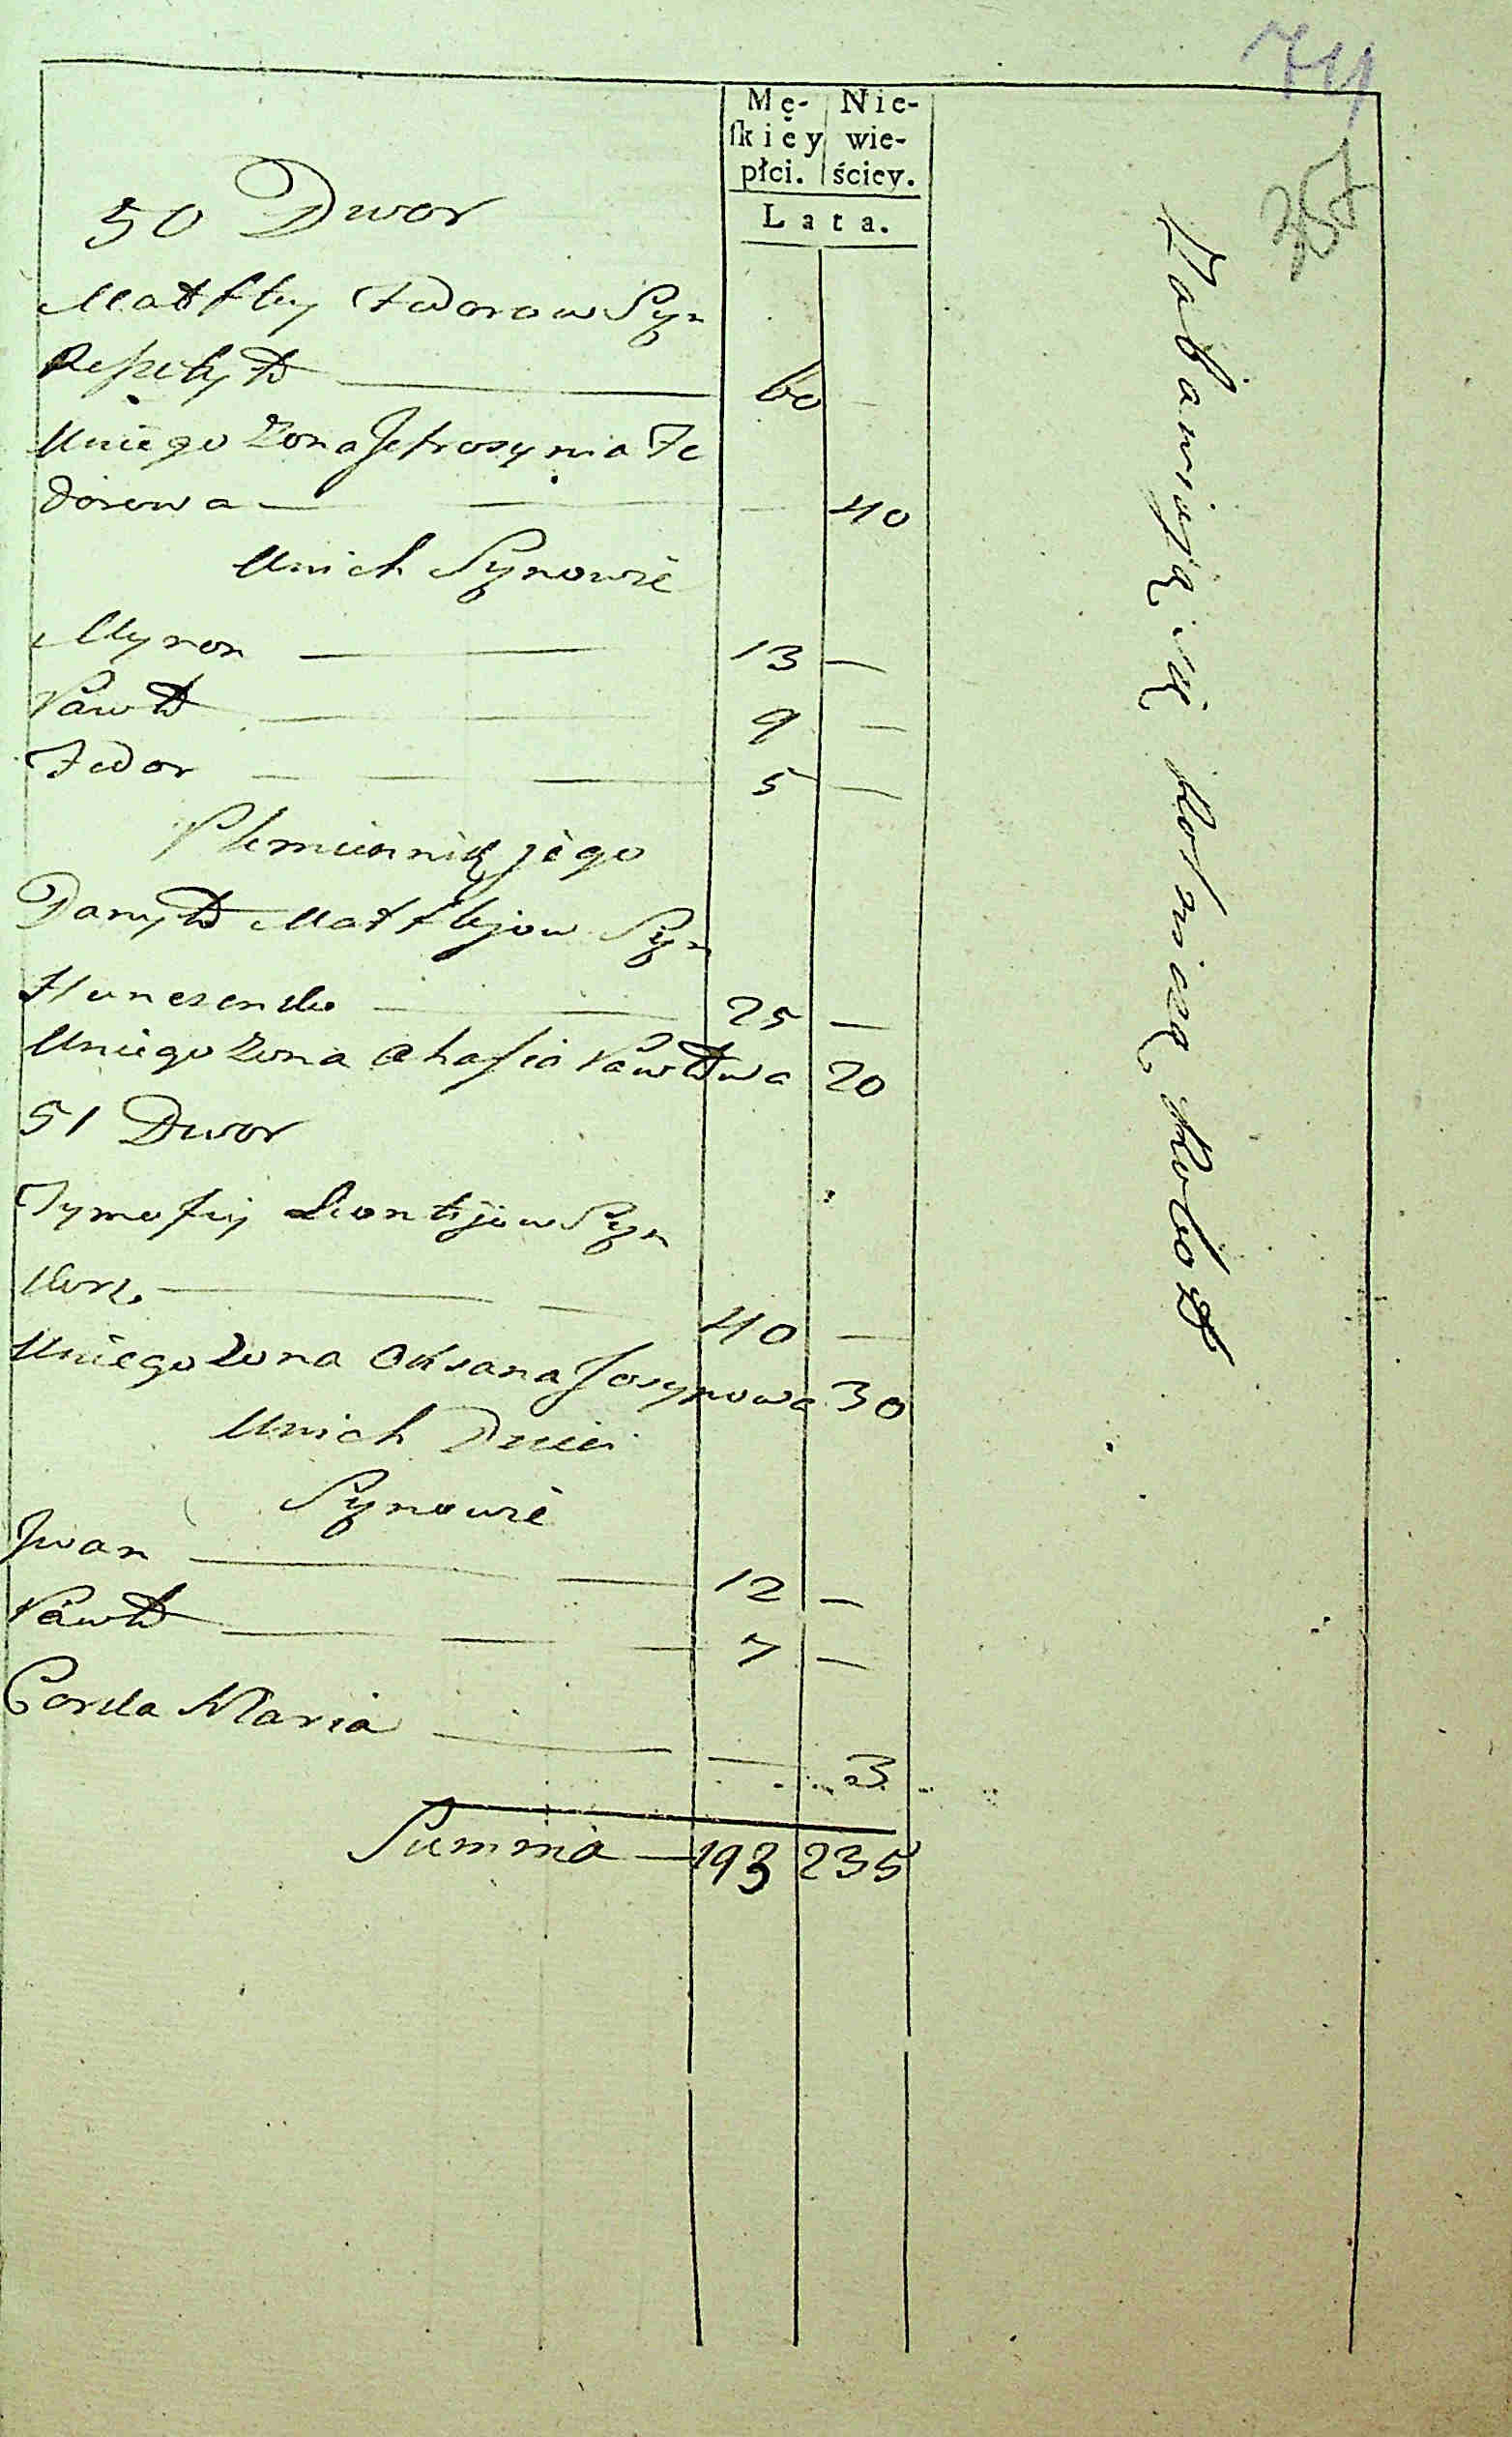 74
357
Mę- Nie-
ſkiéy wie-
płci. ściey.
Lata.
50 Dwor
Matfiey Fedorow Syn
60
Uniego Zona Jefrosynia Fe
dorowa 40
Unich Synowie
Myron 13 —
Pawło 9 —
Fedor 5 —
Plemiennik jego
Danyło Matfiejow Syn
25 —
Uniego Zona Ahafia Pawłowa 20
51 Dwor
Tymofiy Leontijow Syn
40 —
Uniego Zona Oksana Josypowa 30
Unich Dzieci
Synowie
Jwan 12 —
Pawło 7 —
Corka Maria — 3
Summa — 193 235
Zabawiają się Rolniczą Robotą